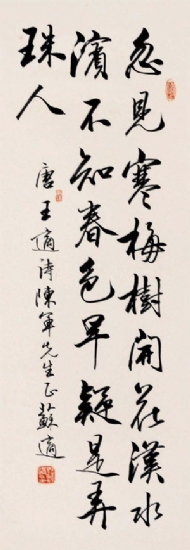 忽見寒梅樹開花漢水
濱不知春色早疑是弄
珠人
唐王適詩陳軍先生正蘇適